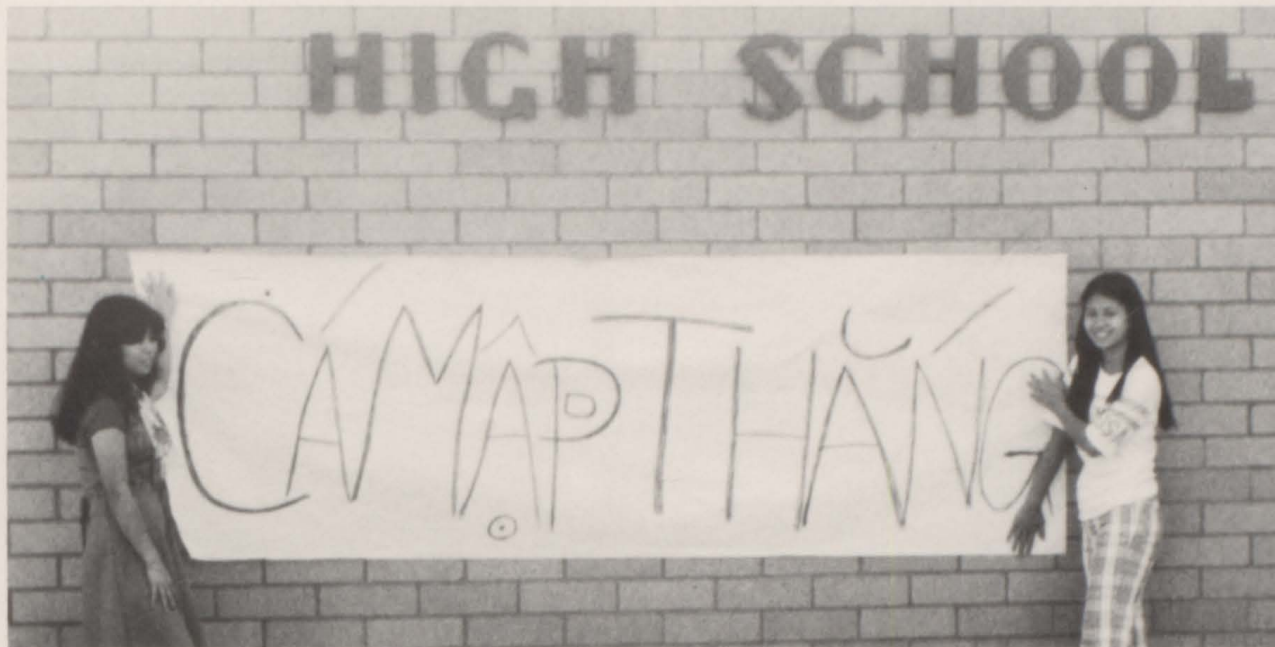 HIGH SCHOOL
CÁ MẬP THẮNG